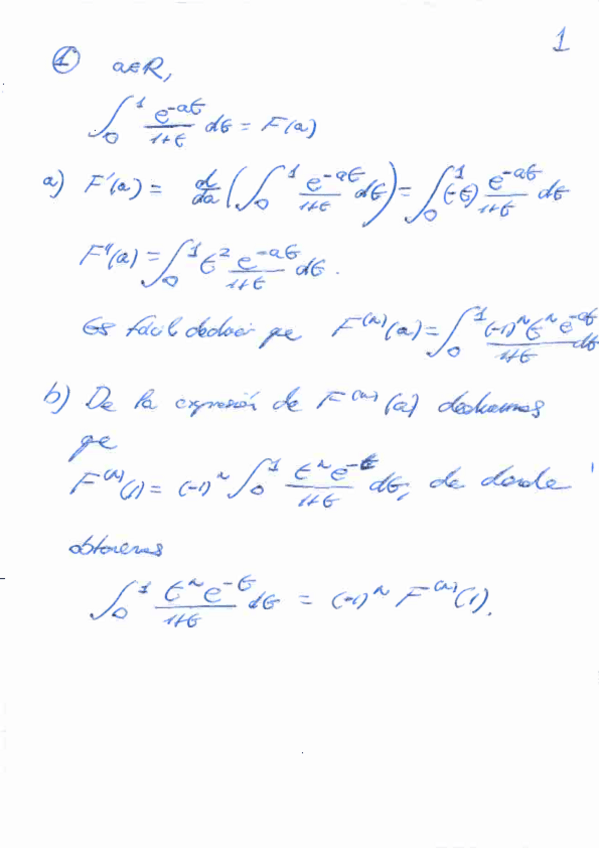 1
① a∈ℝ,
∫₀¹ e^{-at}/(1+t) dt = F(a)
a) F'(a) = d/da (∫₀¹ e^{-at}/(1+t) dt) = ∫₀¹ (-t) e^{-at}/(1+t) dt
F''(a) = ∫₀¹ t² e^{-at}/(1+t) dt.
Es fácil deducir que F^{(n)}(a) = ∫₀¹ (-1)ⁿ tⁿ e^{-at}/(1+t) dt
b) De la expresión de F^{(n)}(a) deducimos
que
F^{(n)}(1) = (-1)ⁿ ∫₀¹ tⁿ e^{-t}/(1+t) dt, de donde
obtenemos
∫₀¹ tⁿ e^{-t}/(1+t) dt = (-1)ⁿ F^{(n)}(1).